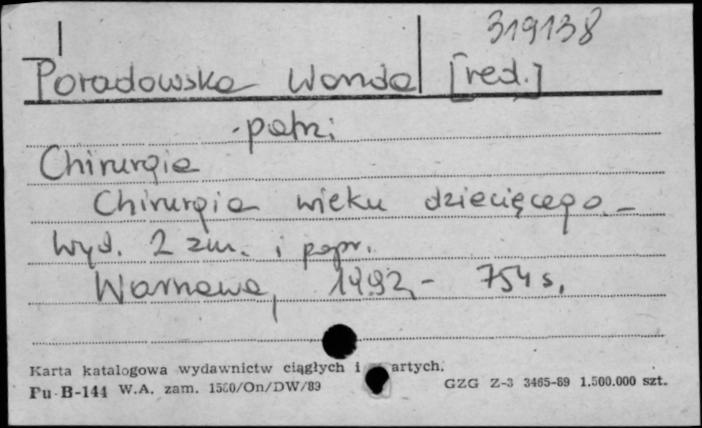 319138
Poradowska Wanda [red.]
patrz:
Chirurgia
Chirurgia wieku dziecięcego. -
Wyd. 2 zm. i popr.
Warszawa, 1992, - 754 s.
Karta katalogowa wydawnictw ciągłych i artych.
Pu-B-144 W.A. zam. 1560/On/DW/89 GZG Z-3 3465-89 1.500.000 szt.